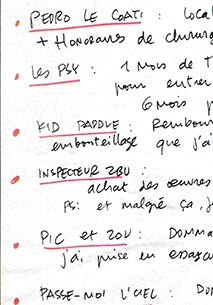 • PEDRO LE COATI : LOCA
+ HONORAIRES de chirurg
• Les PSY : 1 MOIS de T
pour entrer
6 mois p
• KID PADDLE : Rembour
embouteillage que j'ai
• INSPECTEUR ZBU :
achat des œuvres
PS: et malgré ça, j
• PIC et ZOU : DOMMA
j'ai prise en essaya
• PASSE-MOI L'CIEL : DO